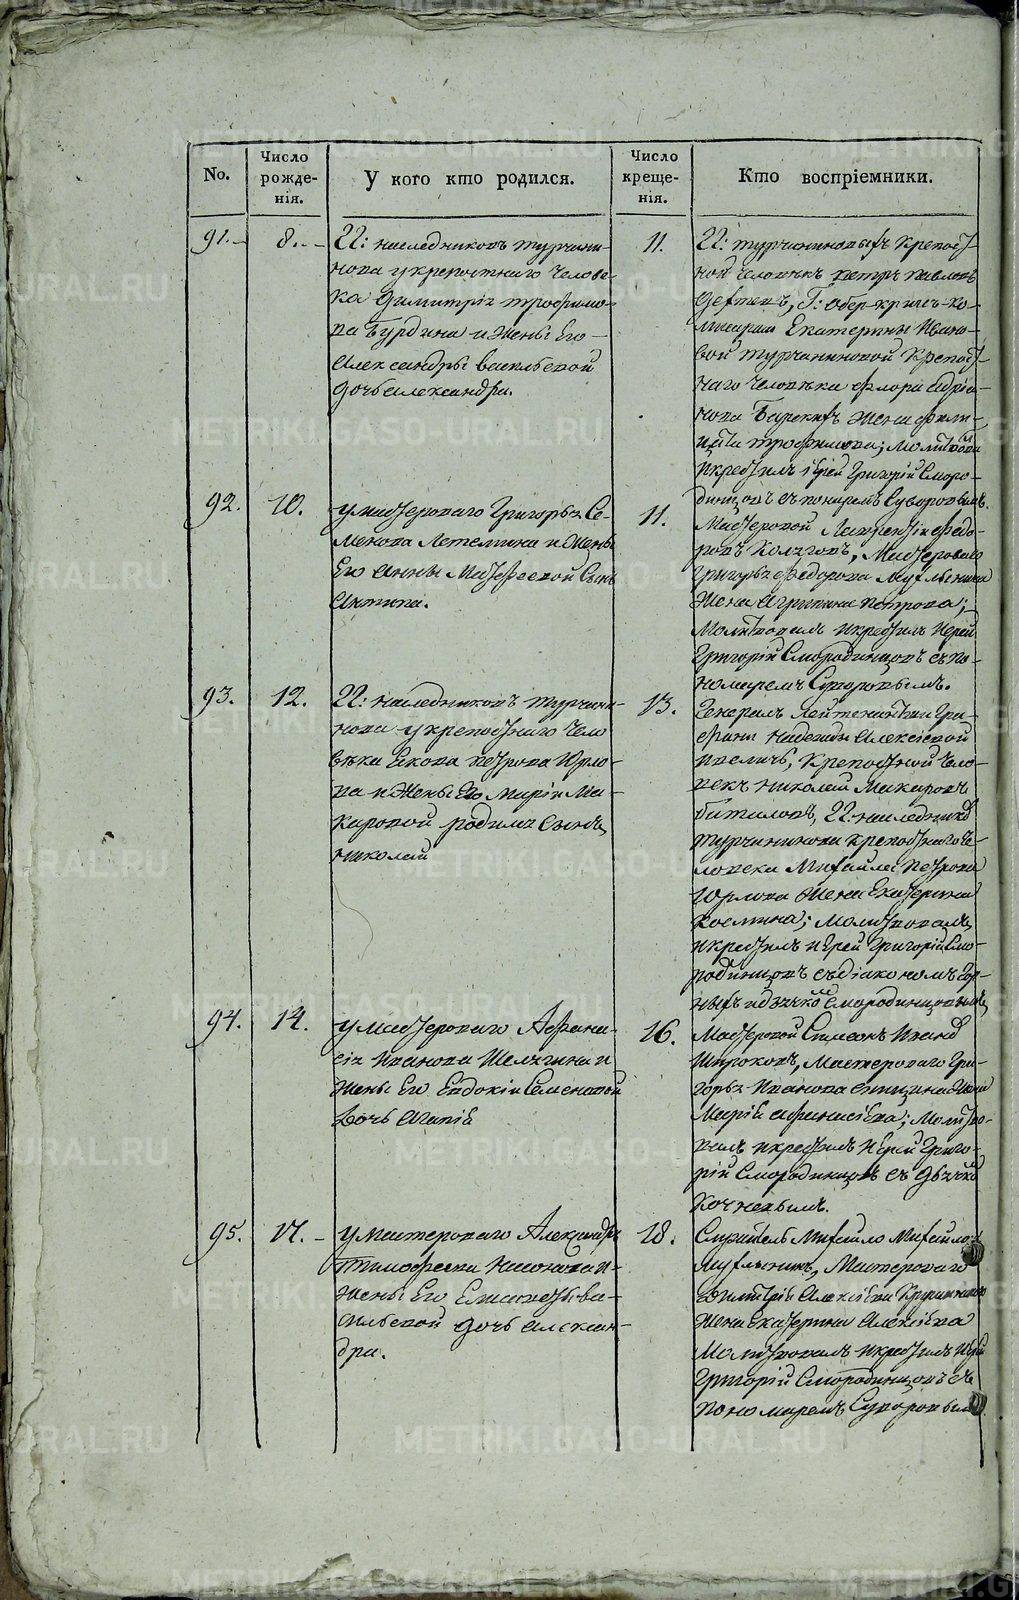 No.
Число рожде-нія.
У кого кто родился.
Число креще-нія.
Кто воспріемники.
91.
8.
22: наследниковъ турчани-
нова у крепостнаго челове-
ка Димитрія трофимо-
ва Бурдина и жены Его
Александры васильевой
дочь александра.
11.
22: турчаниновыхъ крепост-
ной человѣкъ петръ павловъ
Г: Обер-кригсъ-ко-
мисарши Екатерины Ивано-
вой турчаниновой крепост-
наго человѣка флора
жена
трофимова; молитвовал
и крестилъ іерей Григорій Сморо-
динцовъ съ понаремъ Суворовымъ.
92.
10.
у мастероваго Григорья Се-
менова Летемина и жены
Его Анны Матфеевой сынъ
Антипа.
11.
Мастеровой Лаврентій федо-
ровъ Мастероваго
Григорья федорова
жена Агрипина петрова;
Молитвовалъ и крестилъ Иерей
Григорій Смородинцовъ съ по-
номаремъ Суворовымъ.
93.
12.
22: наследниковъ турчани-
нова у крепостнаго чело
вѣка Якова петрова Юрло-
ва и жены Его Маріи Ма-
каровой родился сынъ
николай
13.
Генералъ Лейтенантши Гра-
фини надежды Алексіевой
крепостной чело-
векъ николай Макаровъ
22: наследников
турчанинова крепостнаго че-
ловека Михайла петрова
Юрлова жена Екатерина
Козмина; Молитвовалъ
и крестилъ иерей Григорій Смо-
родинцовъ съ діакономъ
и дьячкомъ Смородинцовымъ
94.
14.
у мастероваго Афана-
сія иванова Шелягина и
жены Его Евдокіи Семеновой
дочь Агапія
16.
Мастеровой Симеонъ Иванов
Широковъ, Мастероваго Гри-
горья иванова жена
Марія афанасіева; Молитво-
валъ и крестилъ Иерей Григо-
рій Смородинцовъ съ дьячком
Кочневымъ.
95.
17.
у мастероваго Александра
Тимофеева и
жены Его Елисаветы ва-
сильевой дочь алексан-
дра.
18.
Служитель Михайло Михайлов
Мухлынинъ, Мастероваго
Димитрія Алексіева
жена Екатерина Алексіева
Молитвовалъ и крестилъ иерей
Григорій Смородинцовъ съ
пономаремъ Суворовым
METRIKI.GASO-URAL.RU